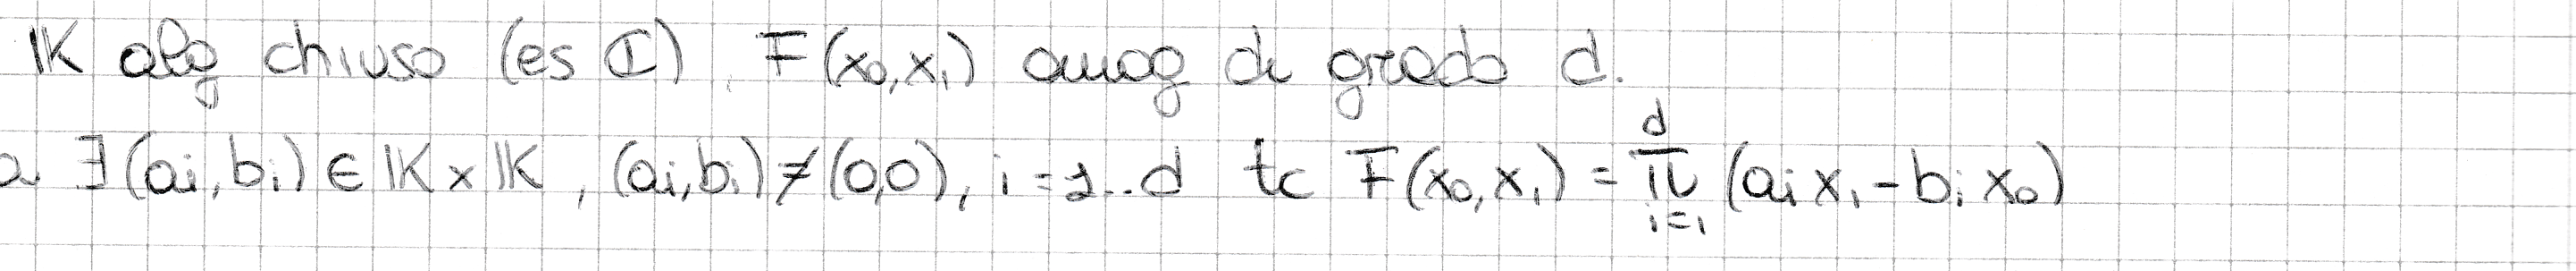 𝕂 alg chiuso (es ℂ), F(x₀,x₁) omog di grado d.
a ∃(aᵢ,bᵢ) ∈ 𝕂 x 𝕂, (aᵢ,bᵢ) ≠ (0,0), i=1..d tc F(x₀,x₁) = ∏ᵢ₌₁ᵈ (aᵢx₁ - bᵢx₀)